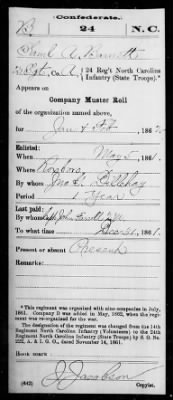 Confederate.
24 N.C.
Saml A. Barnett
Sgt, Co. A, 24 Reg't North Carolina
Infantry (State Troops).*
Appears on
Company Muster Roll
of the organization named above,
for Jan & Feb, 186
Enlisted:
When May 5, 1861.
Where Roxboro
By whom Jno. G. Dillehay
Period 1 Year
Last paid:
By whom Capt John
To what time Dec 31, 1861.
Present or absent Present
Remarks:
*This regiment was organized with nine companies in July,
1861. Company D was added in May, 1862, when the regi-
ment was re-organized for the war.
The designation of the regiment was changed from the 14th
Regiment North Carolina Infantry (Volunteers) to the 24th
Regiment North Carolina Infantry (State Troops) by S. O. No.
222, A. & I. G. O., dated November 14, 1861.
Book mark:
(642) J. Jacobson
Copyist.